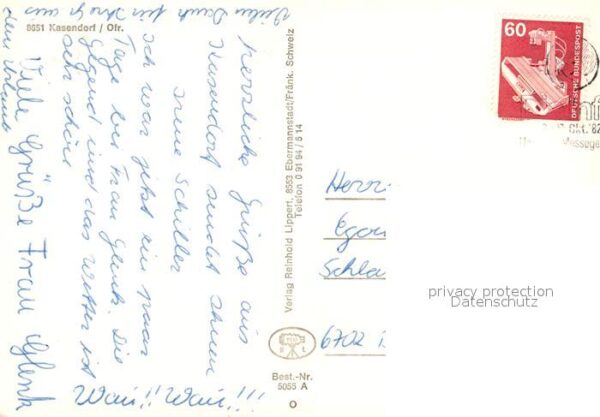 Vielen Dank für Ihre Grüße aus
dem Urlaub
8651 Kasendorf / Ofr.
Herzliche Grüße aus
Kasendorf sendet Ihnen
Irene Schiller
Ich war jetzt ein paar
Tage bei Frau Glenk. Die
Gegend und das Wetter ist
sehr schön
Viele Grüße Frau Glenk
Wau!! Wau!!!
Verlag Reinhold Lippert, 8553 Ebermannstadt/Fränk. Schweiz
Telefon 0 91 94 / 5 14
Best.-Nr.
5055 A
60
DEUTSCHE BUNDESPOST
Okt. '82
Messege
Herrn
Egon
Schla
6702
privacy protection
Datenschutz